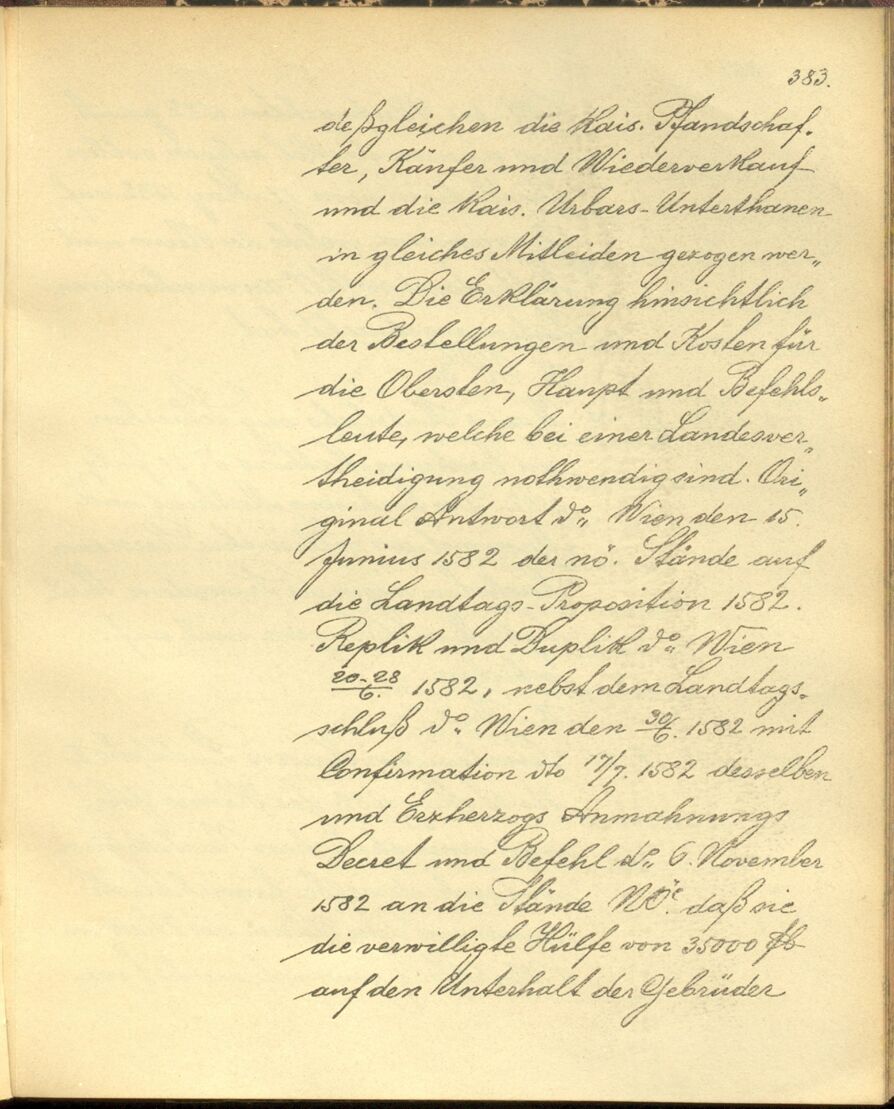 383.
deßgleichen die Kais. Pfandschaf-
ter, Käufer und Wiederverkauf
und die Kais. Urbars-Unterthanen
in gleiches Mitleiden gezogen wer„
den. Die Erklärung hinsichtlich
der Bestellungen und Kosten für
die Obersten, Haupt und Befehls„
leute, welche bei einer Landesver„
theidigung nothwendig sind. Ori„
ginal Antwort do„ Wien den 15.
Junius 1582 der nö. Stände auf
die Landtags-Proposition 1582.
Replik und Duplik do„ Wien
20-28/6. 1582, nebst dem Landtags-
schluß do„ Wien den 30/6. 1582 mit
Confirmation dto 17/7. 1582 desselben
und Erzherzogs Anmahnungs
Decret und Befehl do„ 6. November
1582 an die Stände NÖe. daß sie
die verwilligte Hülfe von 35000 fl
auf den Unterhalt der Gebrüder